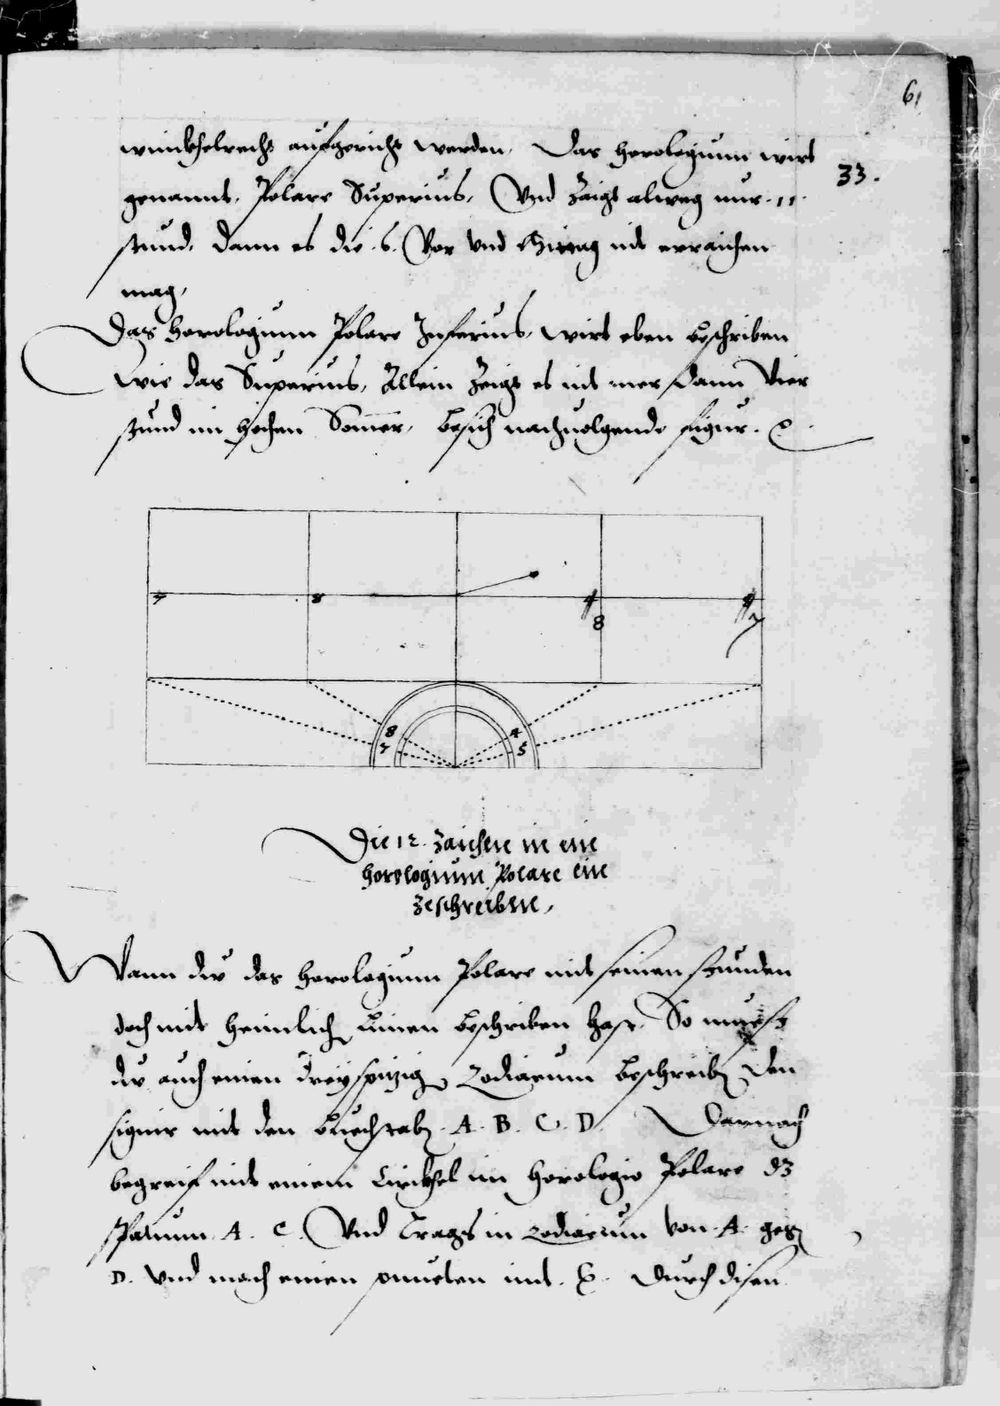 61
33.
winckhelrecht aufgericht werden, Das horologium wirt
genannt, Polare Superius, Vnd Zaigt alweg nur 11
stund, dann es die 6 Vor vnd Mittag nit erraichen
mag,
Das horologium Polare Inferius, wirt eben beschriben
wie das Superius, Allein Zeigt es nit mer dann Vier
stund im hochen Somer, besich nachuolgende figur.
7 8 4 8 5 7
8 4
7 5
Die 12 Zaichen in ein
horologium Polare ein
Zeschreiben,
Wann diu das horologium Polare mit seinen stunden
doch mit heimlich linien beschriben hast, So muest
du auch einen dreyspizig Zodiacum beschreiben den
signir mit den buechstaben A. B. C. D. Darnach
begreif mit einem Zirckhel im horologio Polare dz
spatium A. C. Vnd trags in Zodiacum von A. gegen
D. Vnd mach einen puncten mit. E. Durch disen